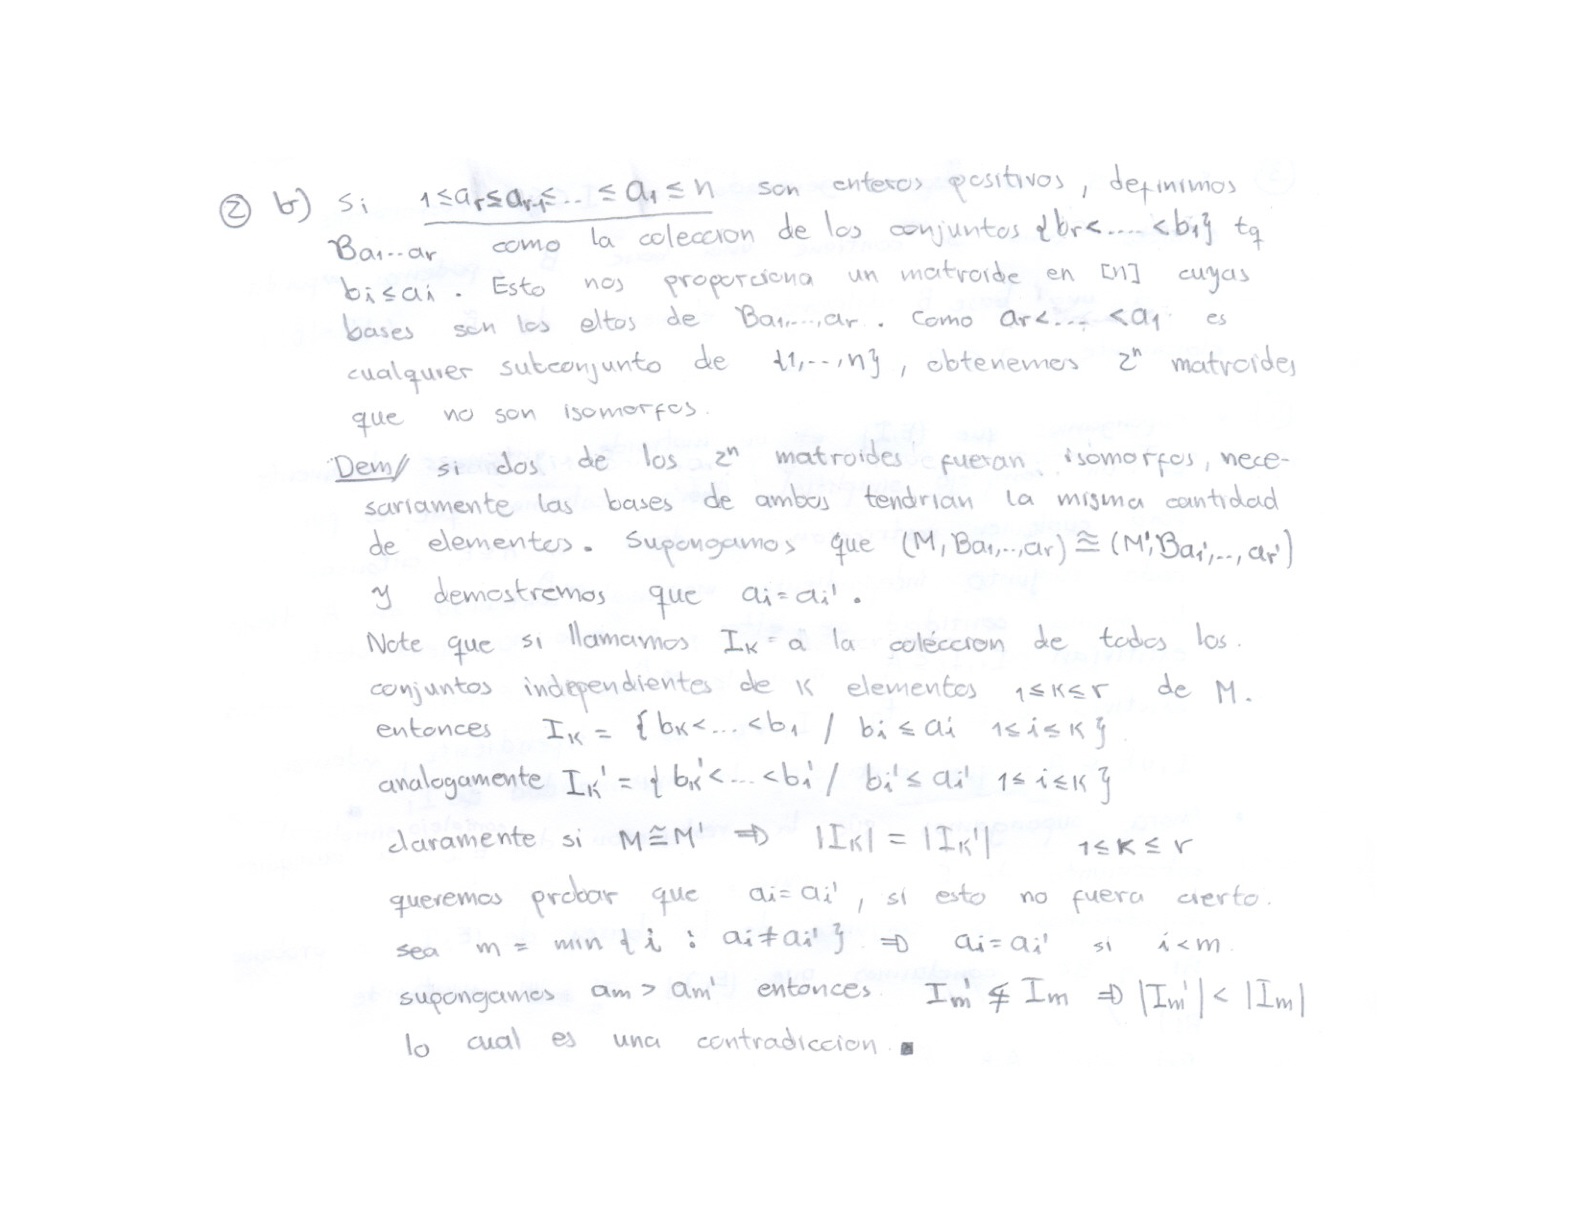 ② b) Si 1≤ar≤ar-1≤... ≤a1≤n son enteros positivos, definimos
Ba1...ar como la coleccion de los conjuntos {br<.....<b1} tq
bi≤ai. Esto nos proporciona un matroide en [n] cuyas
bases son los eltos de Ba1,...,ar. Como ar<...<a1 es
cualquier subconjunto de {1,...,n}, obtenemos 2ⁿ matroides
que no son isomorfos.
Dem// si dos de los 2ⁿ matroides fueran isomorfos, nece-
sariamente las bases de ambos tendrían la misma cantidad
de elementos. Supongamos que (M, Ba1,..,ar) ≅ (M', Ba1',..,ar')
y demostremos que ai=ai'.
Note que si llamamos IK a la colección de todos los
conjuntos independientes de K elementos 1≤K≤r de M.
entonces IK = {bK<...<b1 / bi ≤ ai 1≤i≤K}
analogamente IK' = {bK'<...<b1' / bi' ≤ ai' 1≤i≤K}
claramente si M≅M' ⇒ |IK| = |IK'| 1≤K≤r
queremos probar que ai=ai', si esto no fuera cierto.
sea m = min {i : ai≠ai'} ⇒ ai=ai' si i<m.
supongamos am > am' entonces Im' ⊊ Im ⇒ |Im'| < |Im|
lo cual es una contradiccion. ■